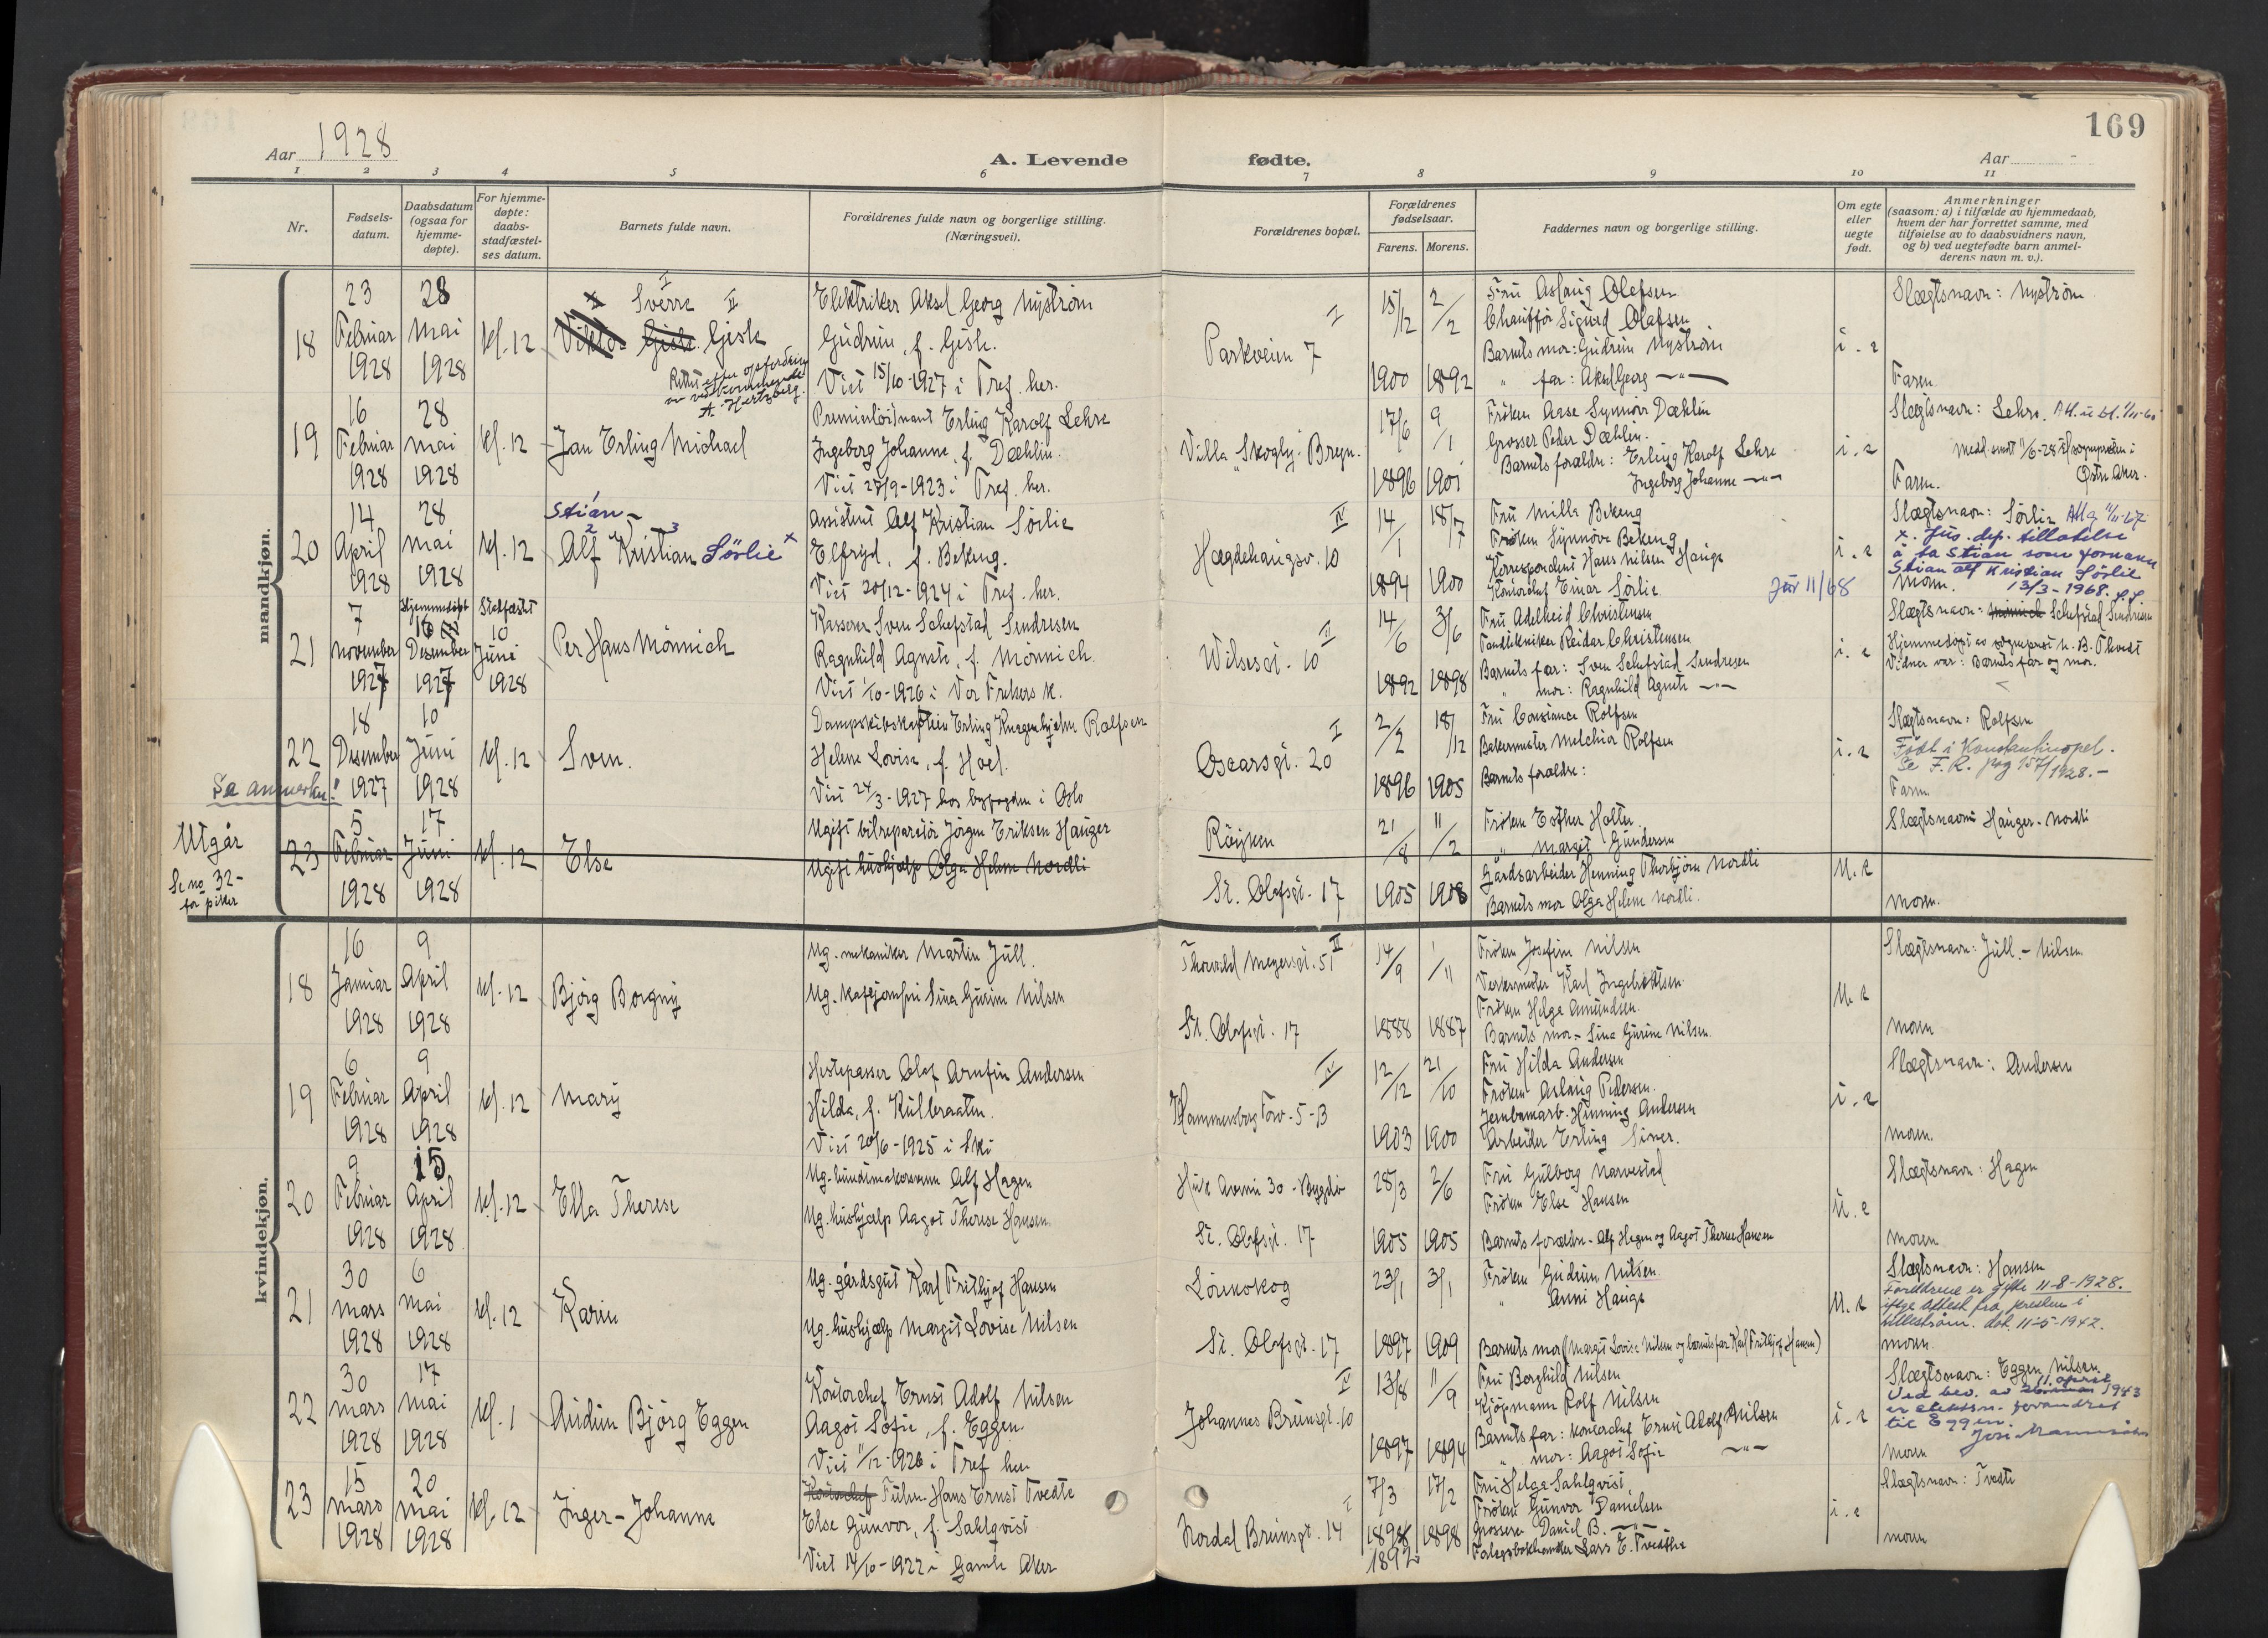 169
Aar 1928
A. Levende fødte.
Aar
1 2 3 4 5 6 7 8 9 10 11
Nr.
Fødsels-
datum.
Daabsdatum
(ogsaa for
hjemme-
døpte).
For hjemme-
døpte:
daabs-
stadfæstel-
ses datum.
Barnets fulde navn.
Forældrenes fulde navn og borgerlige stilling.
(Næringsvei).
Forældrenes bopæl.
Forældrenes
fødselsaar.
Farens. Morens.
Faddernes navn og borgerlige stilling.
Om egte
eller
uegte
født.
Anmerkninger
(saasom: a) i tilfælde av hjemmedaab,
hvem der har forrettet samme, med
tilføielse av to daabsvidners navn,
og b) ved uegtefødte barn anmel-
derens navn m. v.).
mandkjøn.
18
23
Februar
1928
28
Mai
1928
Kl. 12
I
Sverre II
Gisle
Elektriker Aksel Georg Nystrøm
Gudrun, f. Gisle.
Viet 15/10-1927 i Tref. her.
I
Parkveien 7
15/12 1900
2/2 1892
Fru Aslaug Olafsen
Chauffør Sigurd Olafsen
Barnets mor: Gudrun Nystrøm
" far: Aksel Georg —"—
i. e
Slægtsnavn: Nystrøm
Faren.
19
16
Februar
1928
28
Mai
1928
Kl. 12
Jan Erling Michael
Premierløitnant Erling Karolf Lehre
Ingeborg Johanne, f. Dæhlin.
Viet 27/9-1923 i Tref. her.
Villa "Skogly". Bryn.
17/6 1896
9/1 1901
Frøken Aase Synnøve Dæhlin
Grosser Peder Dæhlin.
Barnets forældre: Erling Karolf Lehre
Ingeborg Johanne —"—
i. e
Slægtsnavn: Lehre.
Medd. sendt 11/6-28 til sognepresten i
Østre Aker.
Faren.
20
14
April
1928
28
Mai
1928
Kl. 12
1
Stian-
2 3
Alf Kristian Sørlie x
Assistent Alf Kristian Sørlie
Elfryd, f. Bekeng.
Viet 20/12-1924 i Tref. her.
IV
Hægdehaugsv. 10
14/1 1894
18/7 1900
Fru Milla Bekeng
Frøken Synnøve Bekeng
Korrespondent Hans Nilsen Hauge
Kontorchef Einar Sørlie
Jnr 11/68
i. e
Slægtsnavn: Sørlie
x. Jus. dep. tillatelse
å ta Stian som fornavn
Stian Alf Kristian Sørlie
13/3-1968.
Moren.
21
7
November
1927
Hjemmedøpt
Desember
1927
Stadfæstet
10
Juni
1928
Per Hans Mønnich
Kasserer Sven Schefstad Sendresen
Ragnhild Agnete, f. Mønnich.
Viet 1/10-1926 i Vor Frelsers k.
II
Wilsesgt. 10
14/6 1892
3/6 1898
Fru Adelheid Christensen
Tandtekniker Reidar Christensen
Barnets far: Sven Schefstad Sendresen
" mor: Ragnhild Agnete —"—
i. e
Slægtsnavn: Mønnich Schefstad Sendresen
Hjemmedøpt av sogneprest N. B. Thvedt
Vidner var: Barnets far og mor.
22
18
Desember
1927
10
Juni
1928
Kl. 12
Sven.
Se anmerkn.!
Dampskibskaptein Erling Knagenhjelm Rolfsen
Helene Lovise, f. Hoel.
Viet 24/3-1927 hos byfogden i Oslo
I
Oscarsgt. 20
2/2 1896
18/12 1905
Fru Constance Rolfsen
Bakermester Melchior Rolfsen
Barnets forældre:
i. e
Slægtsnavn: Rolfsen
Født i Konstantinopel.
Se F. R. pag 157/1928.-
Faren
Utgår
Se no 32-
for piker
23
5
Februar
1928
17
Juni
1928
Kl. 12
Else
Ugift bilreparatør Jørgen Eriksen Hauger
Ugift hushjælp Olga Helene Nordli
Røyken
St. Olafsgt. 17
21/8 1905
11/2 1908
Frøken Esther Holter
" Margit Gundersen
Gårdsarbeider Henning Thorbjørn Nordli
Barnets mor Olga Helene Nordli.
U. e
Slægtsnavn Hauger - Nordli
Moren.
kvindekjøn.
18
16
Januar
1928
9
April
1928
Kl. 12
Bjørg Borgny
Ug. mekaniker Martin Jull.
Ug. kafejomfru Sina Gurine Nilsen
Thorvald Meyersgt. 51 II
St. Olafsgt. 17
14/9 1888
1/11 1887
Frøken Josefine Nilsen
Verksmester Karl Ingebretsen.
Frøken Helga Amundsen.
Barnets mor - Sina Gurine Nilsen.
U. e
Slægtsnavn: Jull. - Nilsen.
Moren
19
6
Februar
1928
9
April
1928
Kl. 12
Mary
Hestepasser Olaf Arnfin Andersen
Hilda, f. Kulleraaten.
Viet 20/6-1925 i Ski
IV
Hammersborg Torv. 5-B
12/12 1903
21/10 1900
Fru Hilda Andersen
Frøken Aslaug Pedersen.
Jernbanearb. Henning Andersen
Arbeider Erling Siver.
i. e
Slægtsnavn: Andersen
Moren.
20
9
Februar
1928
15
April
1928
Kl. 12
Ella Therese
Ug. buntmakersvenn Alf Hagen
Ug. hushjælp Aagot Therese Hansen.
Huk Aveny 30 - Bygdø
St. Olafsgt. 17
28/3 1905
2/6 1905
Fru Gulborg Narvestad
Frøken Else Hansen
Barnets forældre - Alf Hagen og Aagot Therese Hansen
U. e
Slægtsnavn: Hagen
Moren
21
30
Mars
1928
6
Mai
1928
Kl. 12
Karin
Ug. gårdsgut Karl Frithjof Hansen
Ug. hushjælp Margit Lovise Nilsen
Lørenskog
St. Olafsgt. 17
23/1 1897
3/1 1909
Frøken Gudrun Nilsen.
" Anni Hauge
Barnets mor (Margit Lovise Nilsen og barnets far Karl Frithjof Hansen)
U. e
Slægtsnavn: Hansen
Foreldrene er gifte 11-8-1928.
ifølge attest fra presten i
Lillestrøm. dat. 11-5-1942.
Moren.
22
30
Mars
1928
17
Mai
1928
Kl. 1
Audun Bjørg Eggen
Kontorchef Ernst Adolf Nilsen
Aagot Sofie, f. Eggen.
Viet 11/12-1926 i Tref her
IV
Johannes Brunsgt. 10
13/8 1897
11/9 1894
Fru Borghild Nilsen
Kjøpmann Rolf Nilsen
Barnets far: Kontorchef Ernst Adolf Nilsen
" mor: Aagot Sofie —"—
i. e
Slægtsnavn: Eggen Nilsen
Ved bev. av 11. april 1943
er slektsn. forandret
til Eggen.
Moren
23
15
Mars
1928
20
Mai
1928
Kl. 12
Inger-Johanne
Kontorchef Fuhm. Hans Ernst Tvedte
Else Gunvor, f. Sahlqvist
Viet 14/10-1922 i Gamle Aker
I
Nordal Brunsgt. 14
7/3 1898
1892
17/2 1898
Fru Helga Sahlqvist,
Frøken Gunvor Danielsen
Grosserer Daniel B. —"—
Forlagsbokhandler Lars E. Tvedte
i. e
Slægtsnavn: Tvedte
Moren